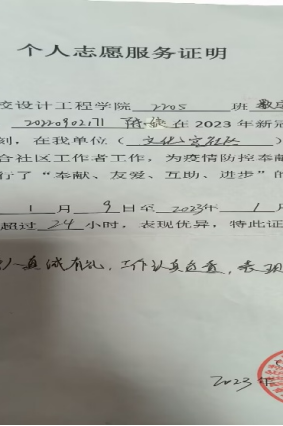 个人志愿服务证明
设计工程学院 2205 班
2022090217 在2023年新冠
刻，在我单位（文化宫社区
合社区工作者工作，为疫情防控奉献
行了“奉献、友爱、互助、进步”的
1 月 9 日至 2023年 1 月
超过 24 小时，表现优异，特此证
人真诚有礼，工作认真负责，表现
2023 年